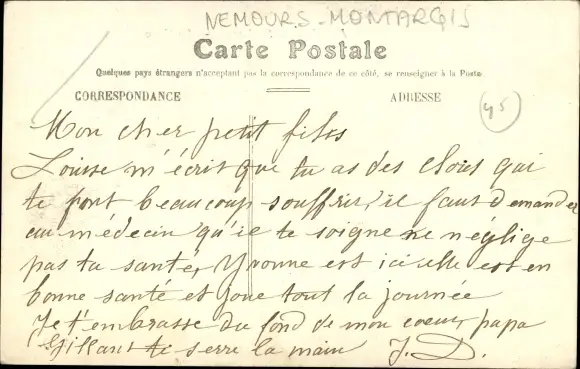 NEMOURS - MONTARGIS
Carte Postale
Quelques pays étrangers n'acceptant pas la correspondance de ce côté, se renseigner à la Poste
CORRESPONDANCE
ADRESSE
45
Mon cher petit fils
Louise m'écrit que tu as des clous qui
te font beaucoup souffrir, il faut demander
au médecin qu'il te soigne ne néglige
pas ta santé, Yvonne est ici elle est en
bonne santé et joue tout la journée
Je t'embrasse du fond de mon coeur, papa
te serre la main J. D.